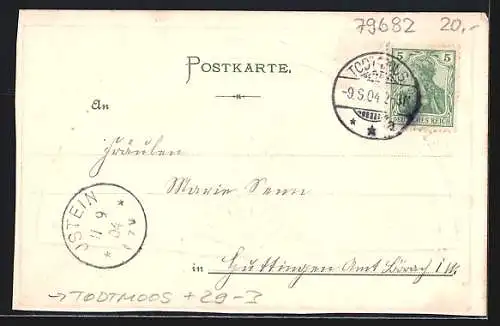 79682 20,-
POSTKARTE.
TODTMOOS
-9.9.04
5 5
DEUTSCHES REICH
An
Fräulein
Marie Senn
in Huttingen Amt Lörrach i W.
ISTEIN
11 9
04
→ TODTMOOS + 29-3